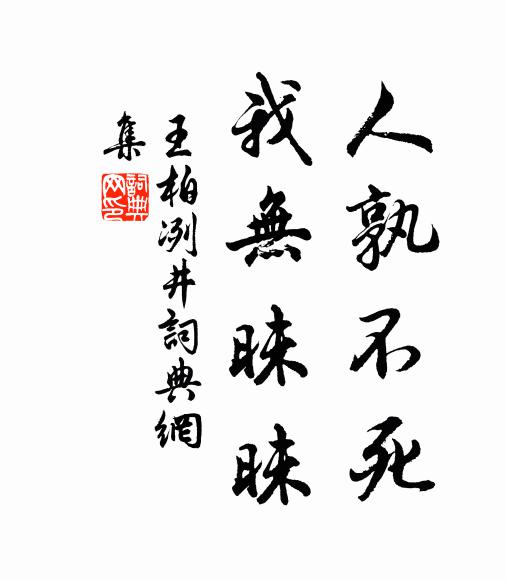 人孰不死
我無昧昧
王柏冽井詞典網
集
詞典網印